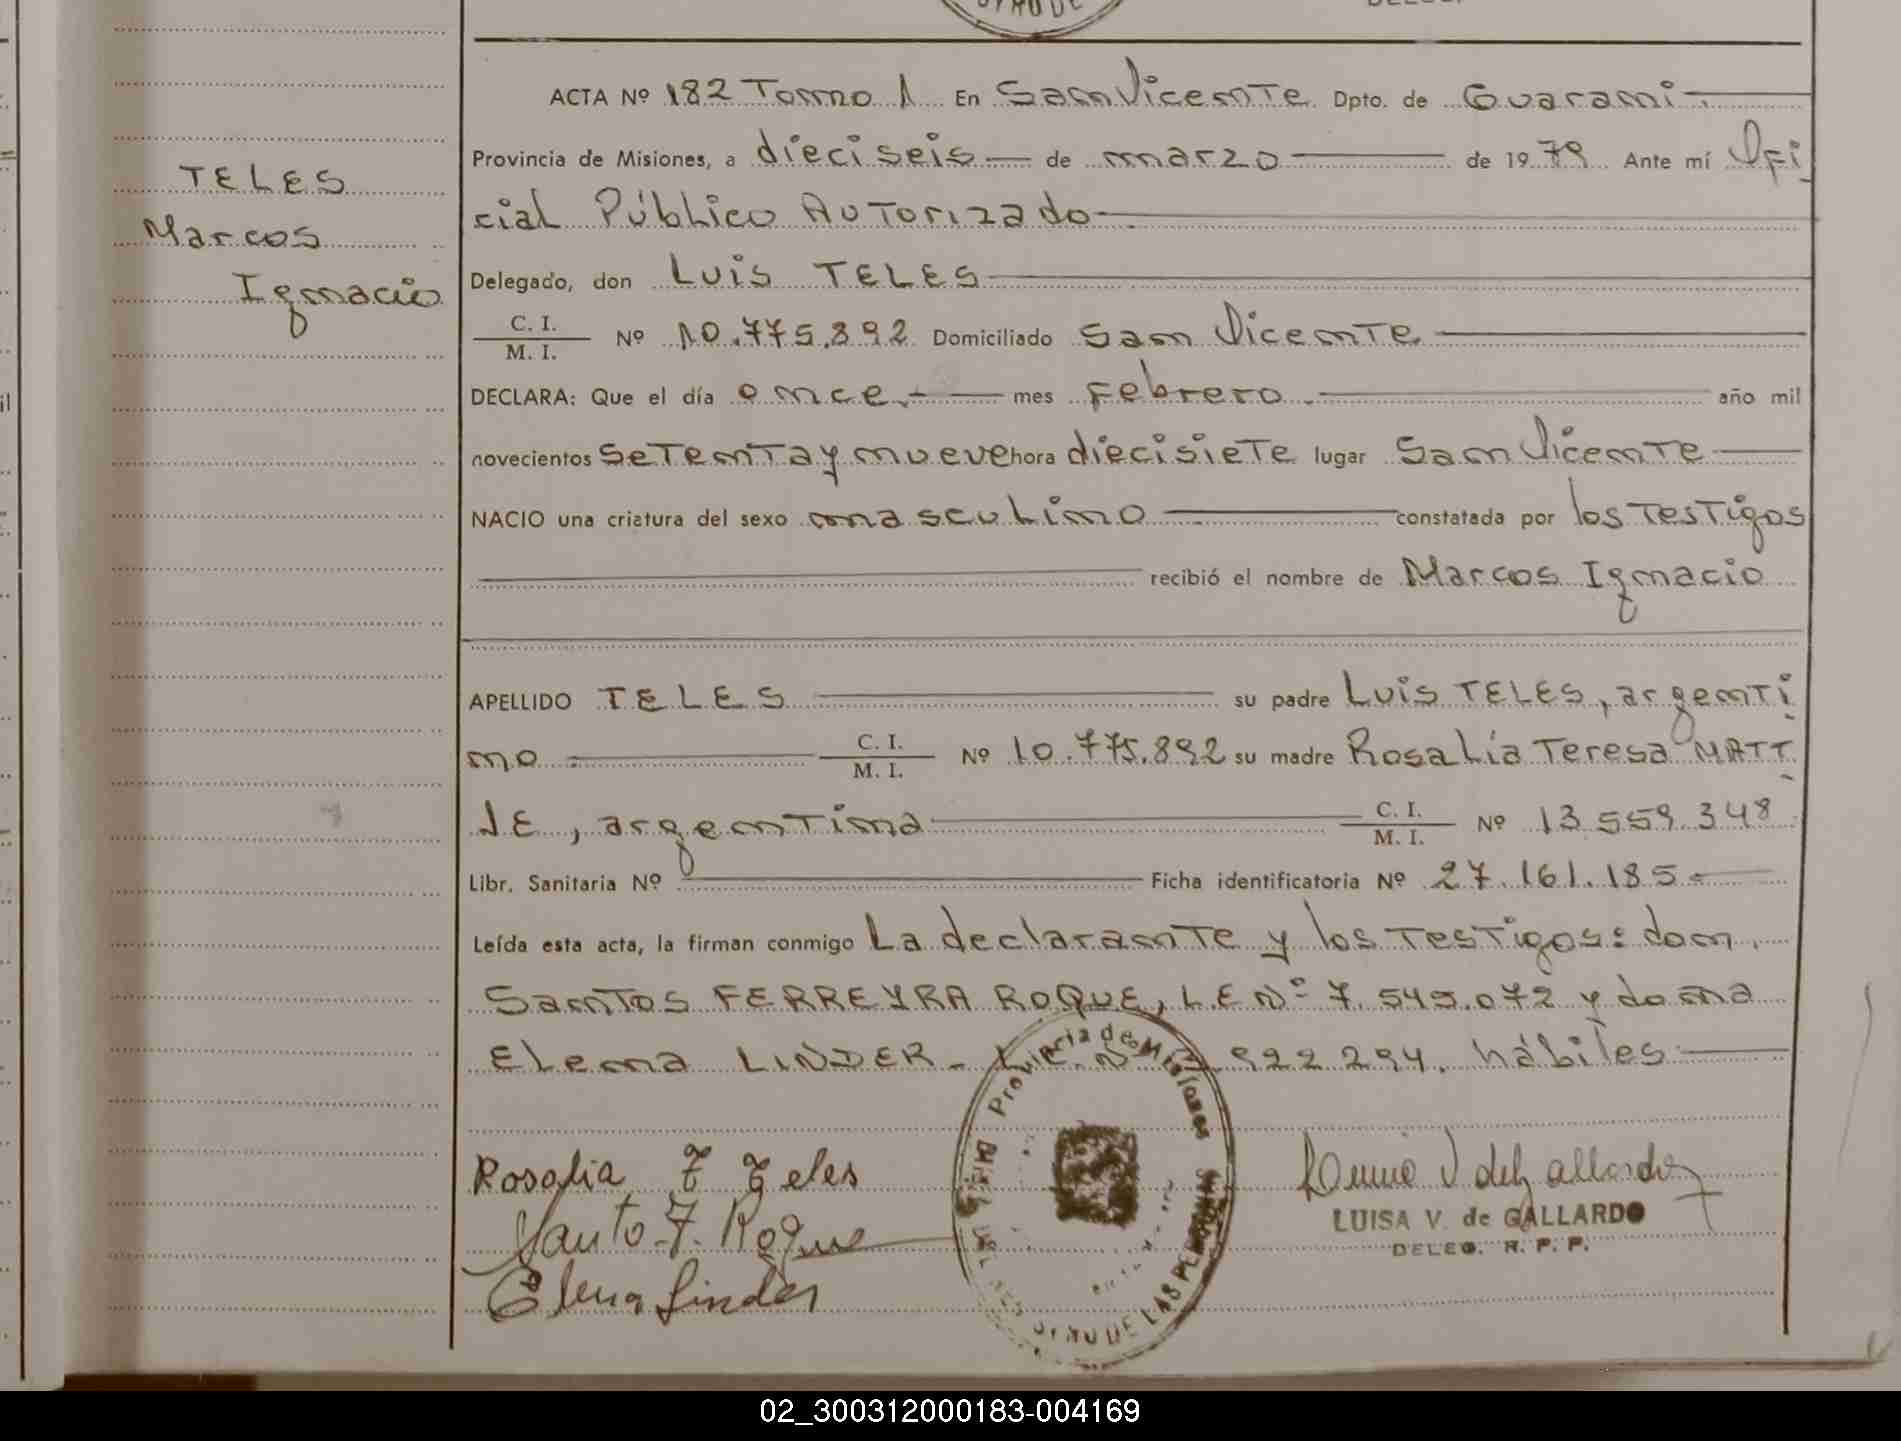 ACTA Nº 182 Tomo 1 En San Vicente Dpto. de Guarani
Provincia de Misiones, a dieciseis de marzo de 1979 Ante mí Ofi
cial Público Autorizado
TELES
Marcos
Ignacio
Delegado, don Luis TELES
C. I.
M. I. Nº 10.775.892 Domiciliado San Vicente
DECLARA: Que el día once mes Febrero año mil
novecientos setenta y nueve hora diecisiete lugar San Vicente
NACIO una criatura del sexo masculino constatada por los Testigos
recibió el nombre de Marcos Ignacio
APELLIDO TELES su padre Luis TELES, argenti
no C. I.
M. I. Nº 10.775.892 su madre Rosalía Teresa MATT
JE, argentina C. I.
M. I. Nº 13.559.348
Libr. Sanitaria Nº Ficha identificatoria Nº 27.161.185
Leída esta acta, la firman conmigo La declarante y los Testigos: don
Santos FERREYRA ROQUE, L.E Nº 7.545.072 y doña
Elena LINDER. 922.294, hábiles
Provincia de Misiones
DE LAS PERSONAS
Rosalia T Teles
Santo F. Roque
Elena Linder
LUISA V. de GALLARDO
DELEG. R. P. P.
02_300312000183-004169